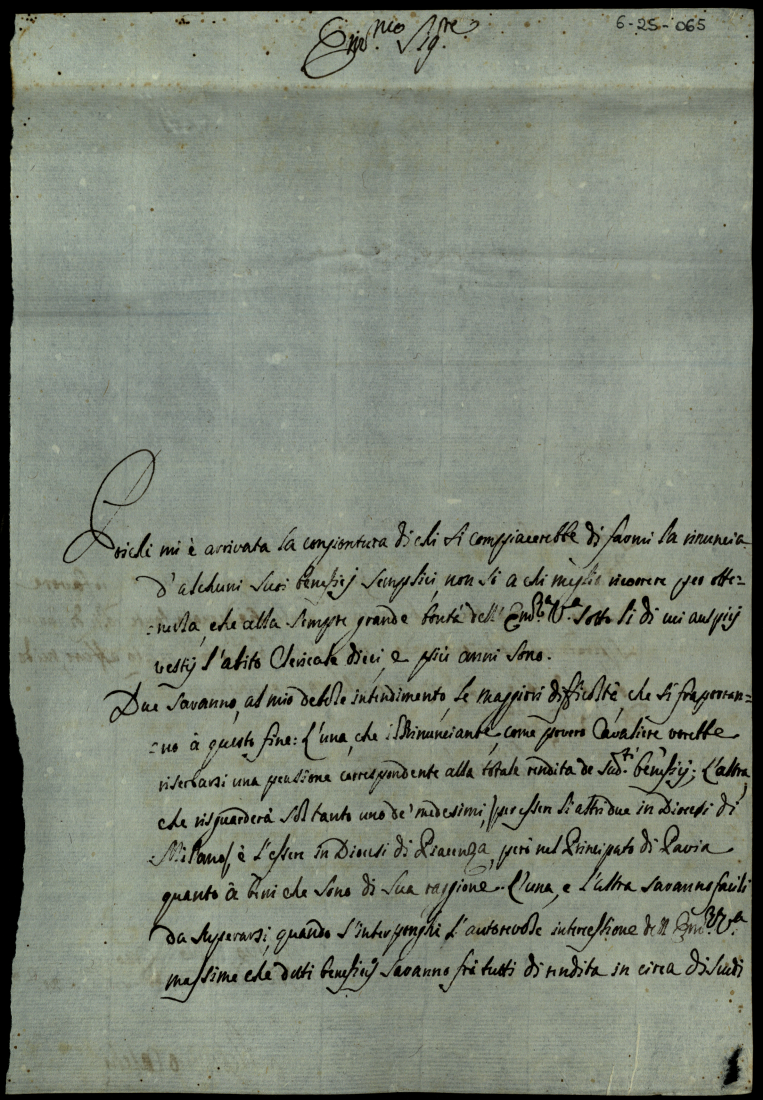 6-25-065
Em.mo Sig.re
Poichè mi è arrivata la congiontura di chi si compiacerebbe di farmi la rinuncia
d'alchuni suoi beneficij semplici, non sò a chi meglio ricorrere per otte=
=nerla, che alla sempre grande bontà dell' Em.za V.a sotto li di cui auspicij
vestij l'abito Clericale dieci, e più anni sono.
Due saranno, al mio debole intendimento, le maggiori difficoltà, che si frapporan=
=no à questo fine: L'una, che il Rinunciante, come povero Cavaliere vorebbe
riserbarsi una pensione correspondente alla totale rendita de sud.ti beneficij; L'altra,
che risguarderà sol tanto uno de' medesimi, (per esser li altri due in Diocesi di
Milano) è l'essere in Diocesi di Piacenza, però nel Principato di Pavia
quanto à beni che sono di sua raggione. L'una, e l'altra saranno facili
da superarsi, quando s'interponghi l'autorevole intercessione dell' Em.za V.a
massime che detti beneficij saranno frà tutti di rendita in circa di scudi